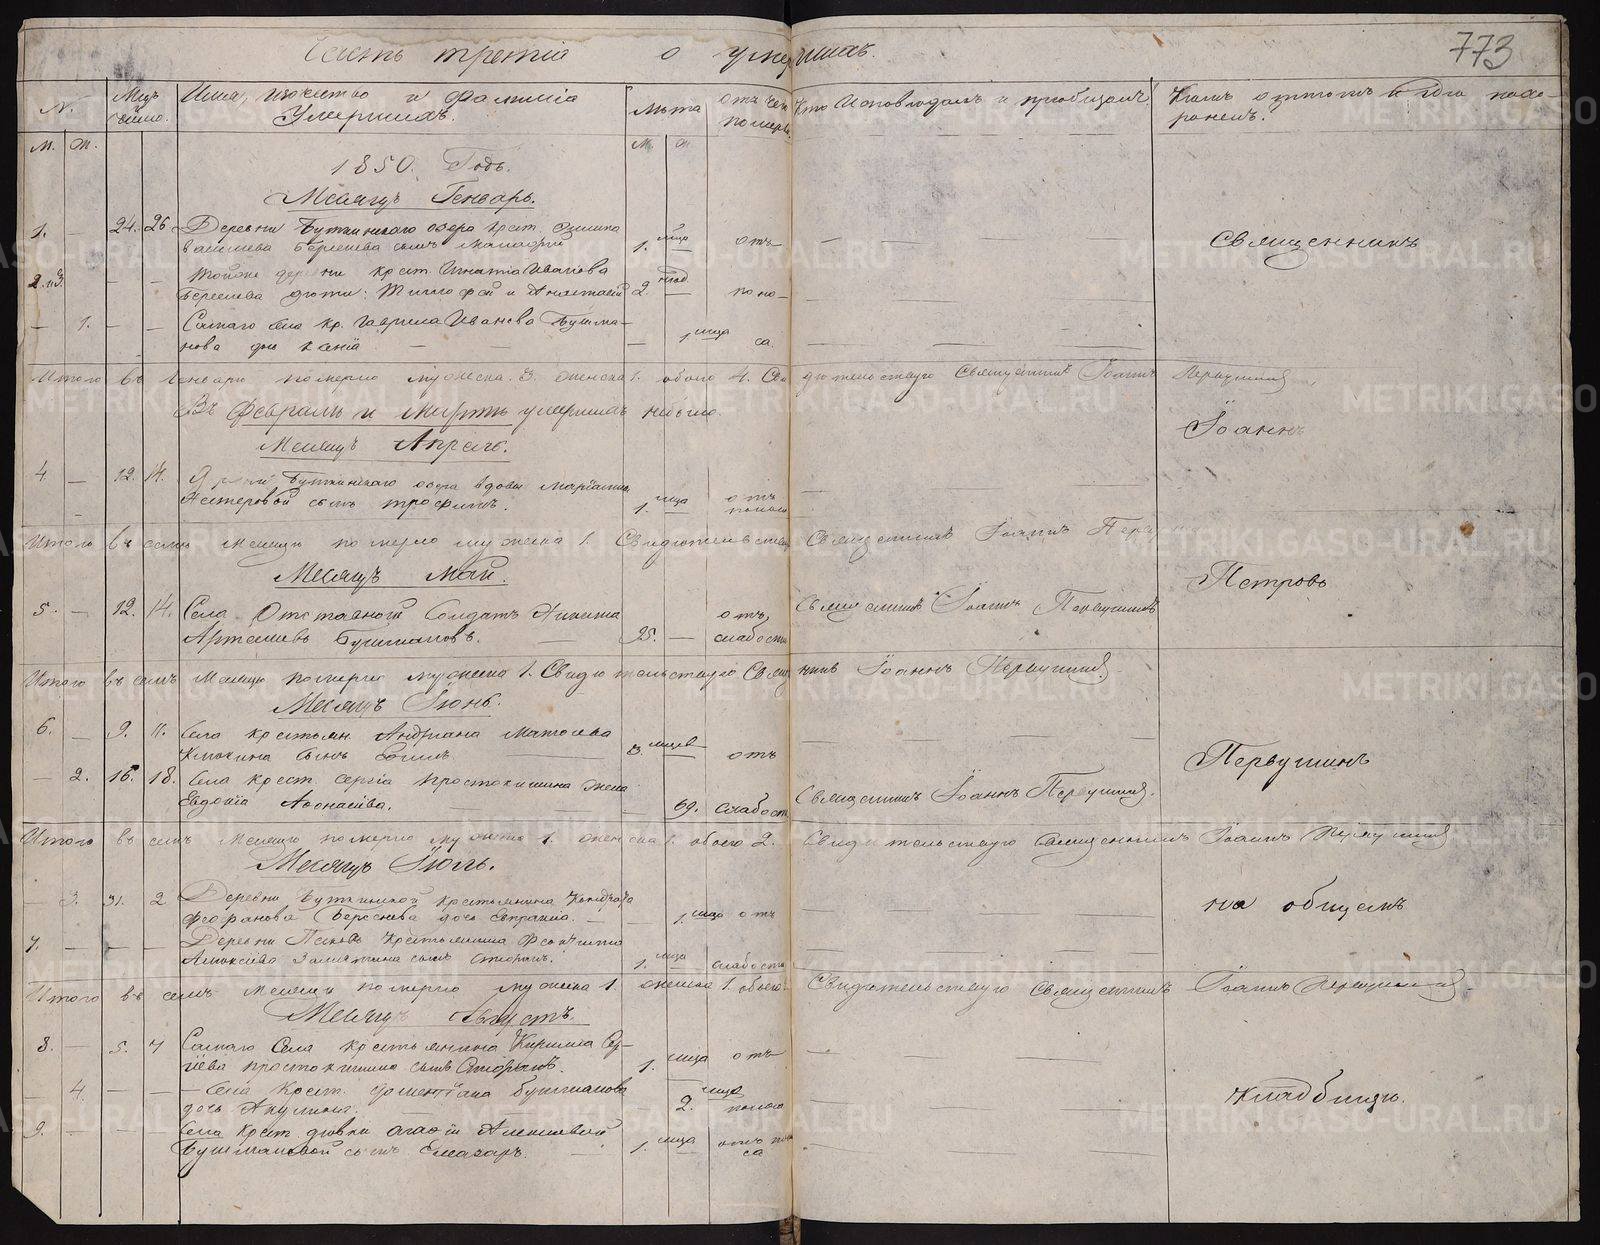 Часть третія о умершихъ.
773
№. Мцъ число. Имя, отчество и фамилія Умершихъ. Лѣта отъ чего померъ Кто Исповѣдалъ и пріобщалъ Кѣмъ и гдѣ похороненъ.
М. Ж. М. Ж
1850. Годъ.
Месяцъ Генварь.
1. — 24. 26 Деревни Буткинскаго озера крест.
Васильева Береснева сынъ 1. мца отъ
2. и 3. — — — Тойже деревни крест. Игнатія Иванова
Береснева дѣти: Тимофей и Анастасій 2. нед. поно-
— 1. — — Самаго села кр. Гаврила Иванова Бушма-
нова дочь Ксенія — — — 1. мца са.
Священникъ
Итого въ Генварѣ померло мужеска. 3. женска 1. обоего 4. Свидѣтельствую Священникъ Іоаннъ Первушинъ
Въ Февралѣ и Мартѣ умершихъ небыло.
Іоаннъ
Месяцъ Апрель.
4 — 12. 14. Буткинскаго озера вдовы
Нестеровой сынъ Трофимъ. 1. мца отъ поноса
Итого въ семъ месяцѣ померло мужеска 1. Свидѣтельствую Священникъ Іоаннъ Перву
Месяцъ Май.
Петровъ
5. — 12. 14. Села Отставной Солдатъ Никита
Артемьевъ Бушмановъ. — 95. — отъ слабости Священникъ Іоаннъ Первушинъ
Итого въ семъ месяцѣ померло мужеска 1. Свидѣтельствую Священникъ Іоаннъ Первушинъ.
Месяцъ Іюнь.
6. — 9. 11. Села крестьян. Андріана Матвеева
Клюкина сынъ 3. мцев отъ
Первушинъ
— 2. 16. 18. Села крест. Сергія Простокишина жена
Евдокія Афонасьева. — 69. слабости Священникъ Іоаннъ Первушинъ.
Итого въ семъ месяцѣ померло мужеска 1. женска 1. обоего 2. Свидѣтельствую Священникъ Іоаннъ Первушинъ
Месяцъ Іюль.
— 3. 31. 2 Деревни Буткинской крестьянина Кондрата
Феофанова Береснева дочь 1. мца отъ
на общемъ
7. — — — Деревни крестьянина
Алексѣева Замятнина сынъ 1. мца слабости
Итого въ семъ месяцѣ померло мужеска 1. женска 1. обоего Свидѣтельствую Священникъ Іоаннъ Первушинъ
Месяцъ Августъ.
8. — 5. 7 Самаго Села крестьянина Кирилла Сер-
гѣева Простокишина сынъ 1. мца отъ
4. — — Села Крест. Дометіана Бушманова
дочь Акулина. — 2. мцев поноса
кладбищѣ.
9. — — — Села крест. девки Алексѣевой
Бушмановой сынъ 1. мца отъ поно
са
METRIKI.GASO-URAL.RU